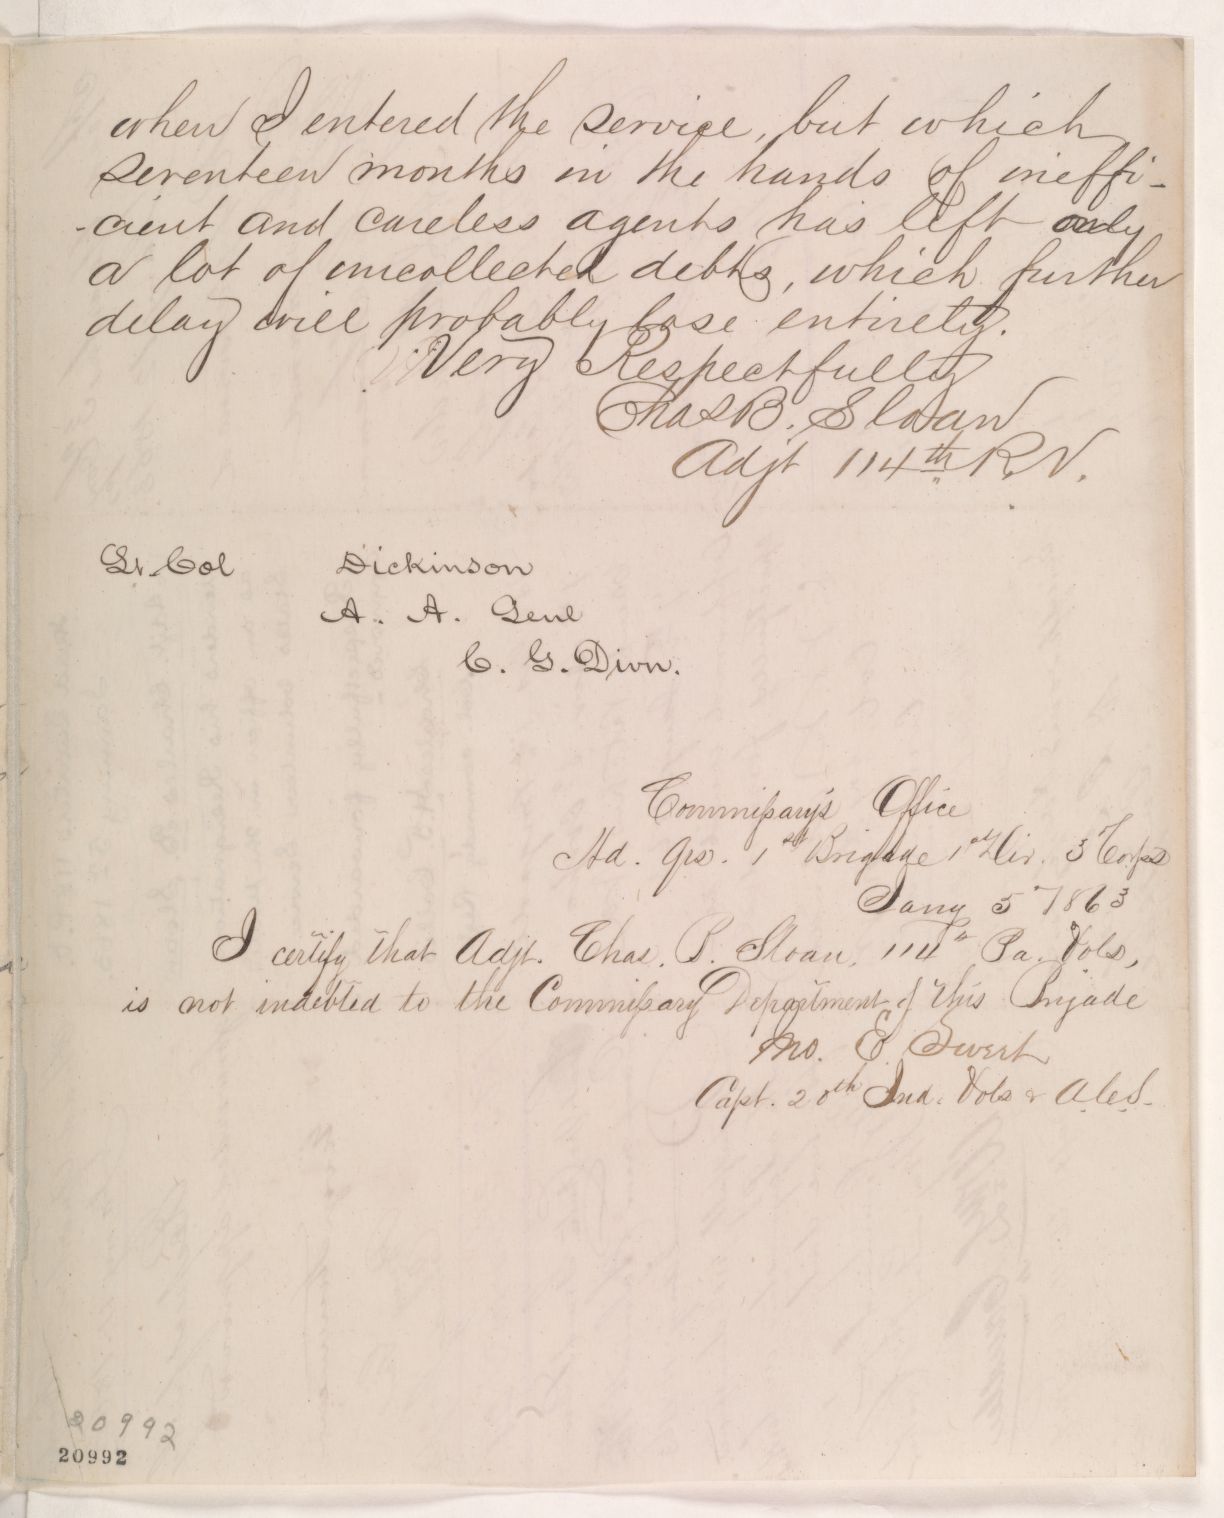 when I entered the service, but which
seventeen months in the hands of ineffi-
-cient and careless agents has left only
a lot of uncollected debts, which further
delay will probably lose entirely.
Very Respectfully
Chas B. Sloan
Adjt 114th P.V.
Lt. Col Dickinson
A. A. Genl
C. G. Divn.
Commissary's Office
Hd. Qrs. 1st Brigade 1st Div. 3 Corps
Jany 5th 1863
I certify that Adjt. Chas. B. Sloan, 114th Pa. Vols,
is not indebted to the Commissary Department of this Brigade
Jno. E.
Capt. 20th Ind. Vols & A.C.S.
20992
20992